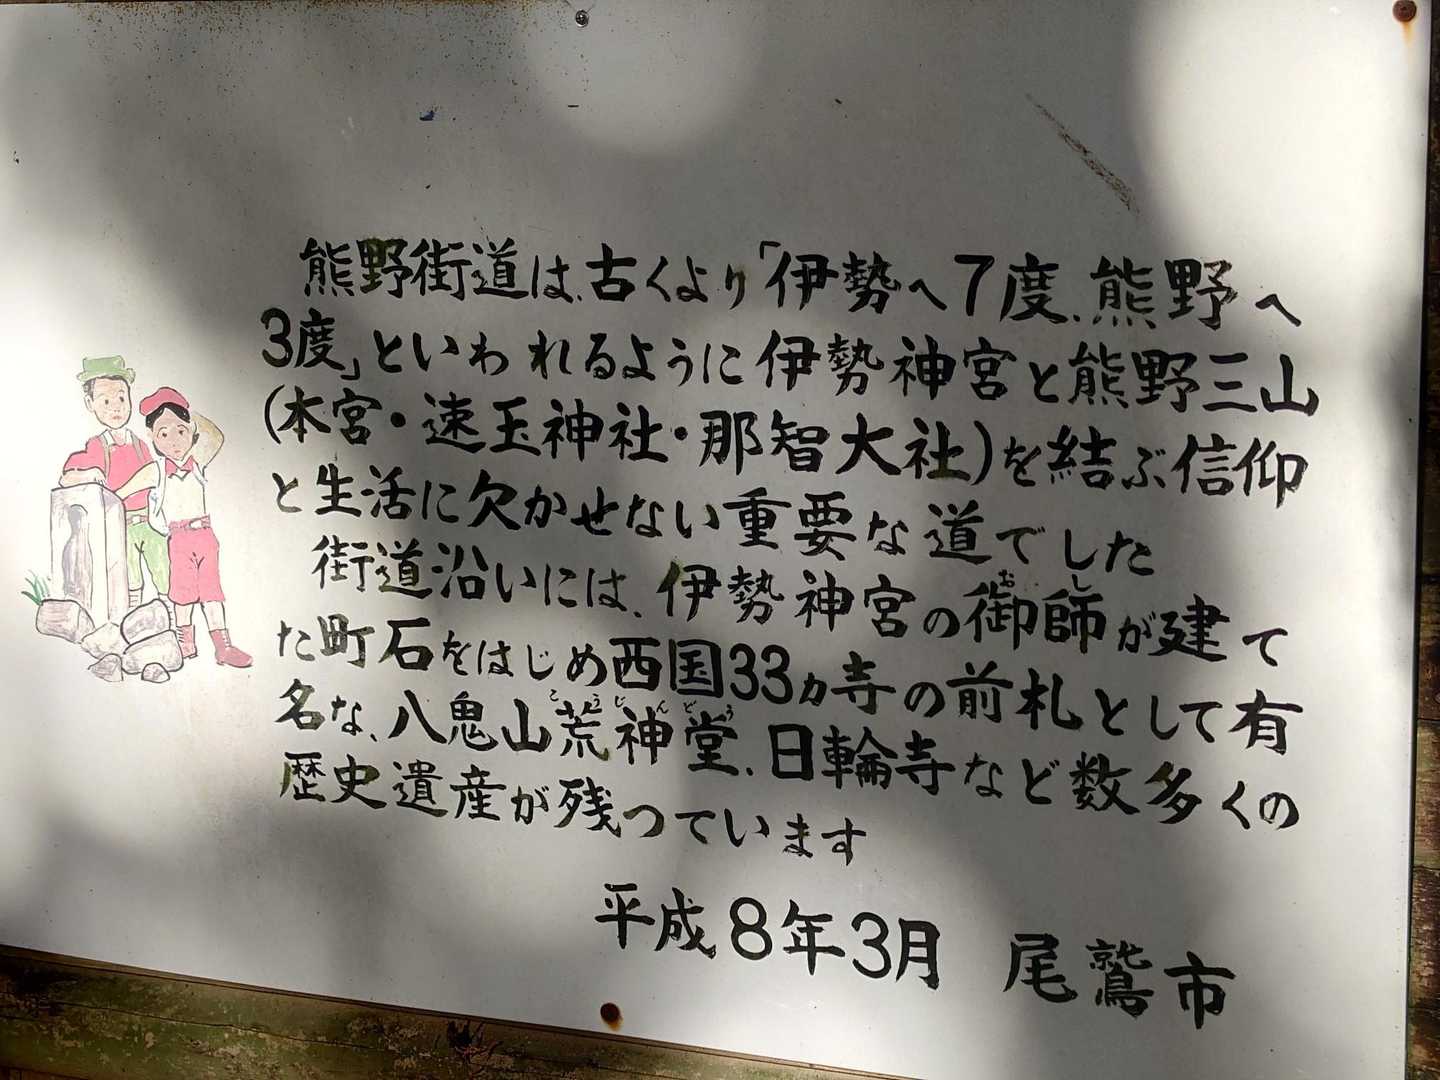 熊野街道は、古くより「伊勢へ7度、熊野へ
3度」といわれるように伊勢神宮と熊野三山
(本宮・速玉神社・那智大社)を結ぶ信仰
と生活に欠かせない重要な道でした
街道沿いには、伊勢神宮の御師が建て
おし
た町石をはじめ西国33ヵ寺の前札として有
名な、八鬼山荒神堂、日輪寺など数多くの
こうじんどう
歴史遺産が残っています
平成8年3月 尾鷲市